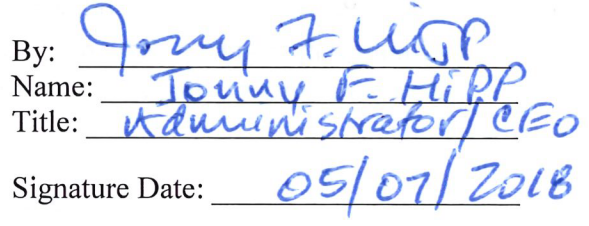 By: Jonny F. Hipp
Name: Jonny F. HiPP
Title: Administrator/CEO
Signature Date: 05/07/2018